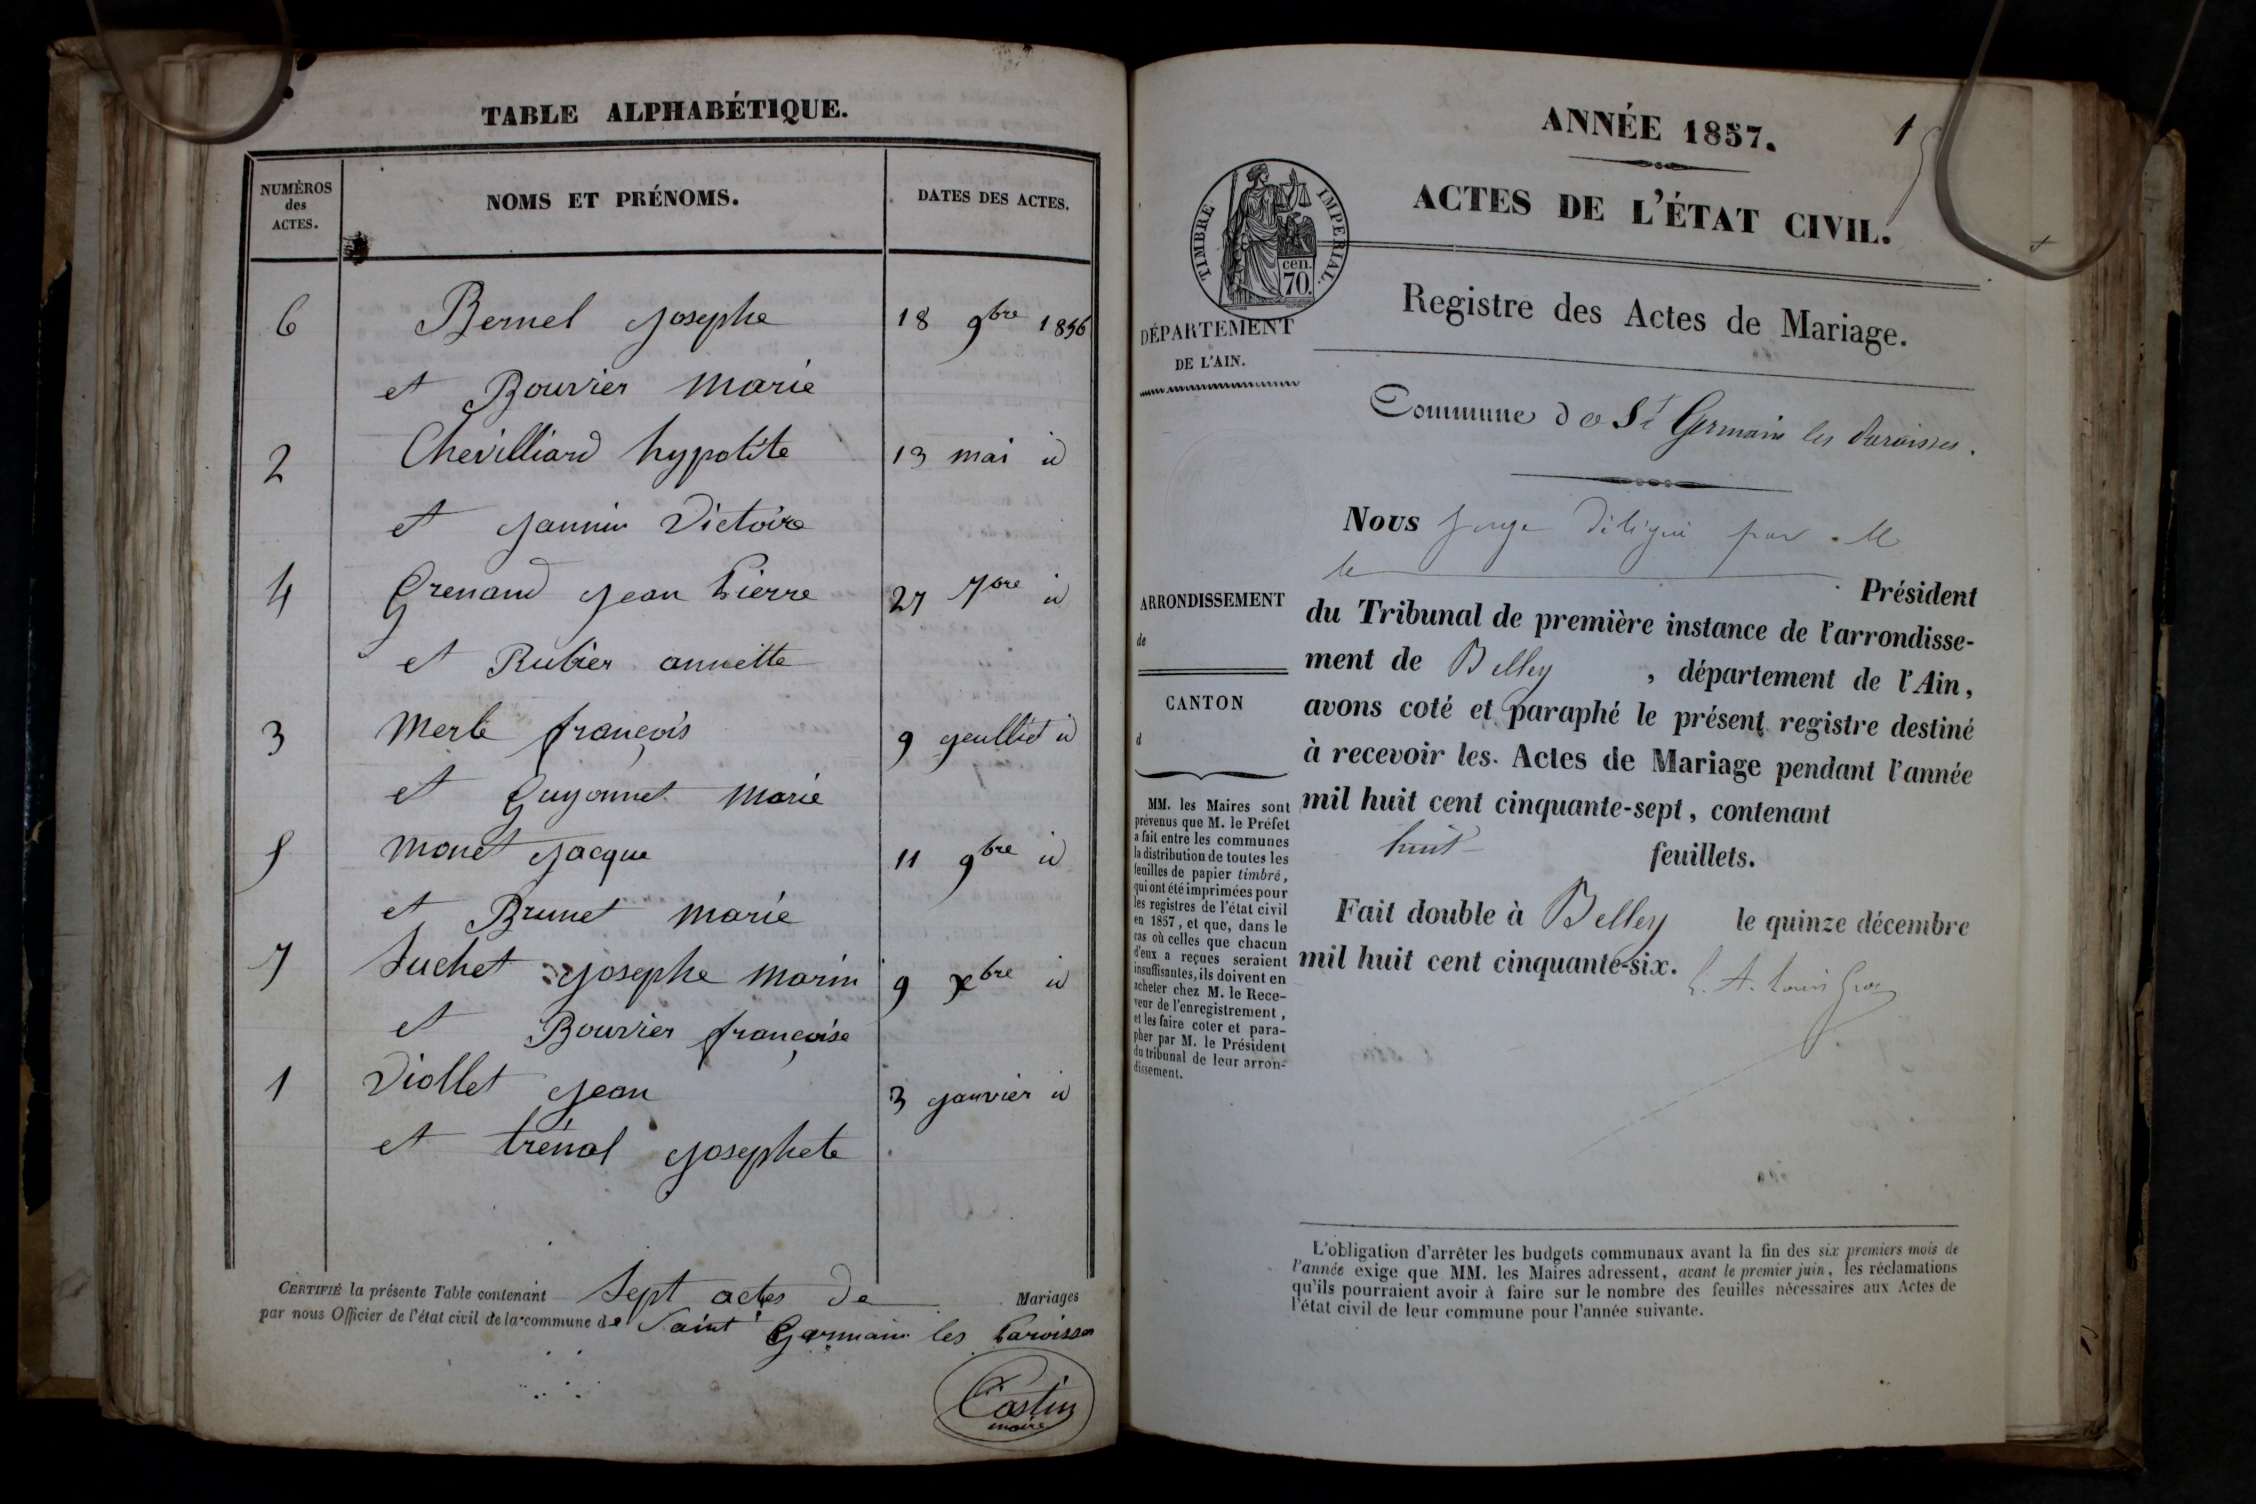 TABLE ALPHABÉTIQUE.
NUMÉROS
des
ACTES.
NOMS ET PRÉNOMS.
DATES DES ACTES.
6 Bernel Josephe 18 9bre 1856
et Bouvier Marie
2 Chevilliard hypolite 13 mai id
et Jannin Victoire
4 Grenand Jean Pierre 27 7bre id
et Rubier annette
3 Merle françois 9 jeulliet id
et Guyonnet Marie
5 Monet Jacque 11 9bre id
et Brunet Marie
7 Suchet Josephe Marin 9 xbre id
et Bouvier françoise
1 Viollet Jean 3 Janvier id
et trénal Josephete
CERTIFIÉ la présente Table contenant Sept actes de Mariages
par nous Officier de l'état civil de la commune de Saint Germain les Paroisses
Costin
maire
ANNÉE 1857.
1
ACTES DE L'ÉTAT CIVIL.
TIMBRE IMPERIAL.
cen.
70.
DÉPARTEMENT
DE L'AIN.
Registre des Actes de Mariage.
Commune de St Germain les Paroisses.
Nous Juge délégué par M
le Président
du Tribunal de première instance de l'arrondisse-
ment de Belley, département de l'Ain,
avons coté et paraphé le présent registre destiné
à recevoir les Actes de Mariage pendant l'année
mil huit cent cinquante-sept, contenant
huit feuillets.
Fait double à Belley le quinze décembre
mil huit cent cinquante-six.
ARRONDISSEMENT
de
CANTON
d
MM. les Maires sont
prévenus que M. le Préfet
a fait entre les communes
la distribution de toutes les
feuilles de papier timbré,
qui ont été imprimées pour
les registres de l'état civil
en 1857, et que, dans le
cas où celles que chacun
d'eux a reçues seraient
insuffisantes, ils doivent en
acheter chez M. le Rece-
veur de l'enregistrement,
et les faire coter et para-
pher par M. le Président
du tribunal de leur arron-
dissement.
L'obligation d'arrêter les budgets communaux avant la fin des six premiers mois de
l'année exige que MM. les Maires adressent, avant le premier juin, les réclamations
qu'ils pourraient avoir à faire sur le nombre des feuilles nécessaires aux Actes de
l'état civil de leur commune pour l'année suivante.